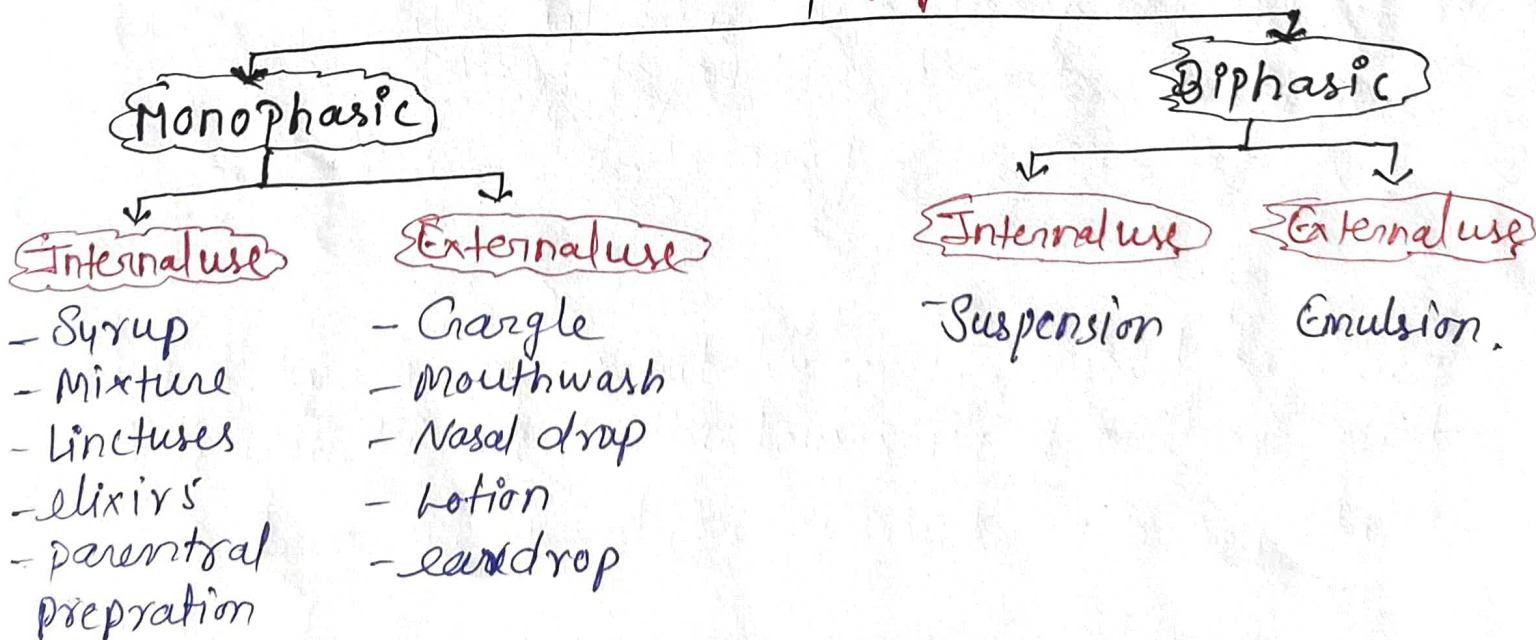 Monophasic
Biphasic
Internal use
External use
Internal use
External use
- Syrup
- Mixture
- Linctuses
- elixirs
- parentral
prepration
- Gargle
- Mouthwash
- Nasal drop
- Lotion
- eardrop
- Suspension
Emulsion.